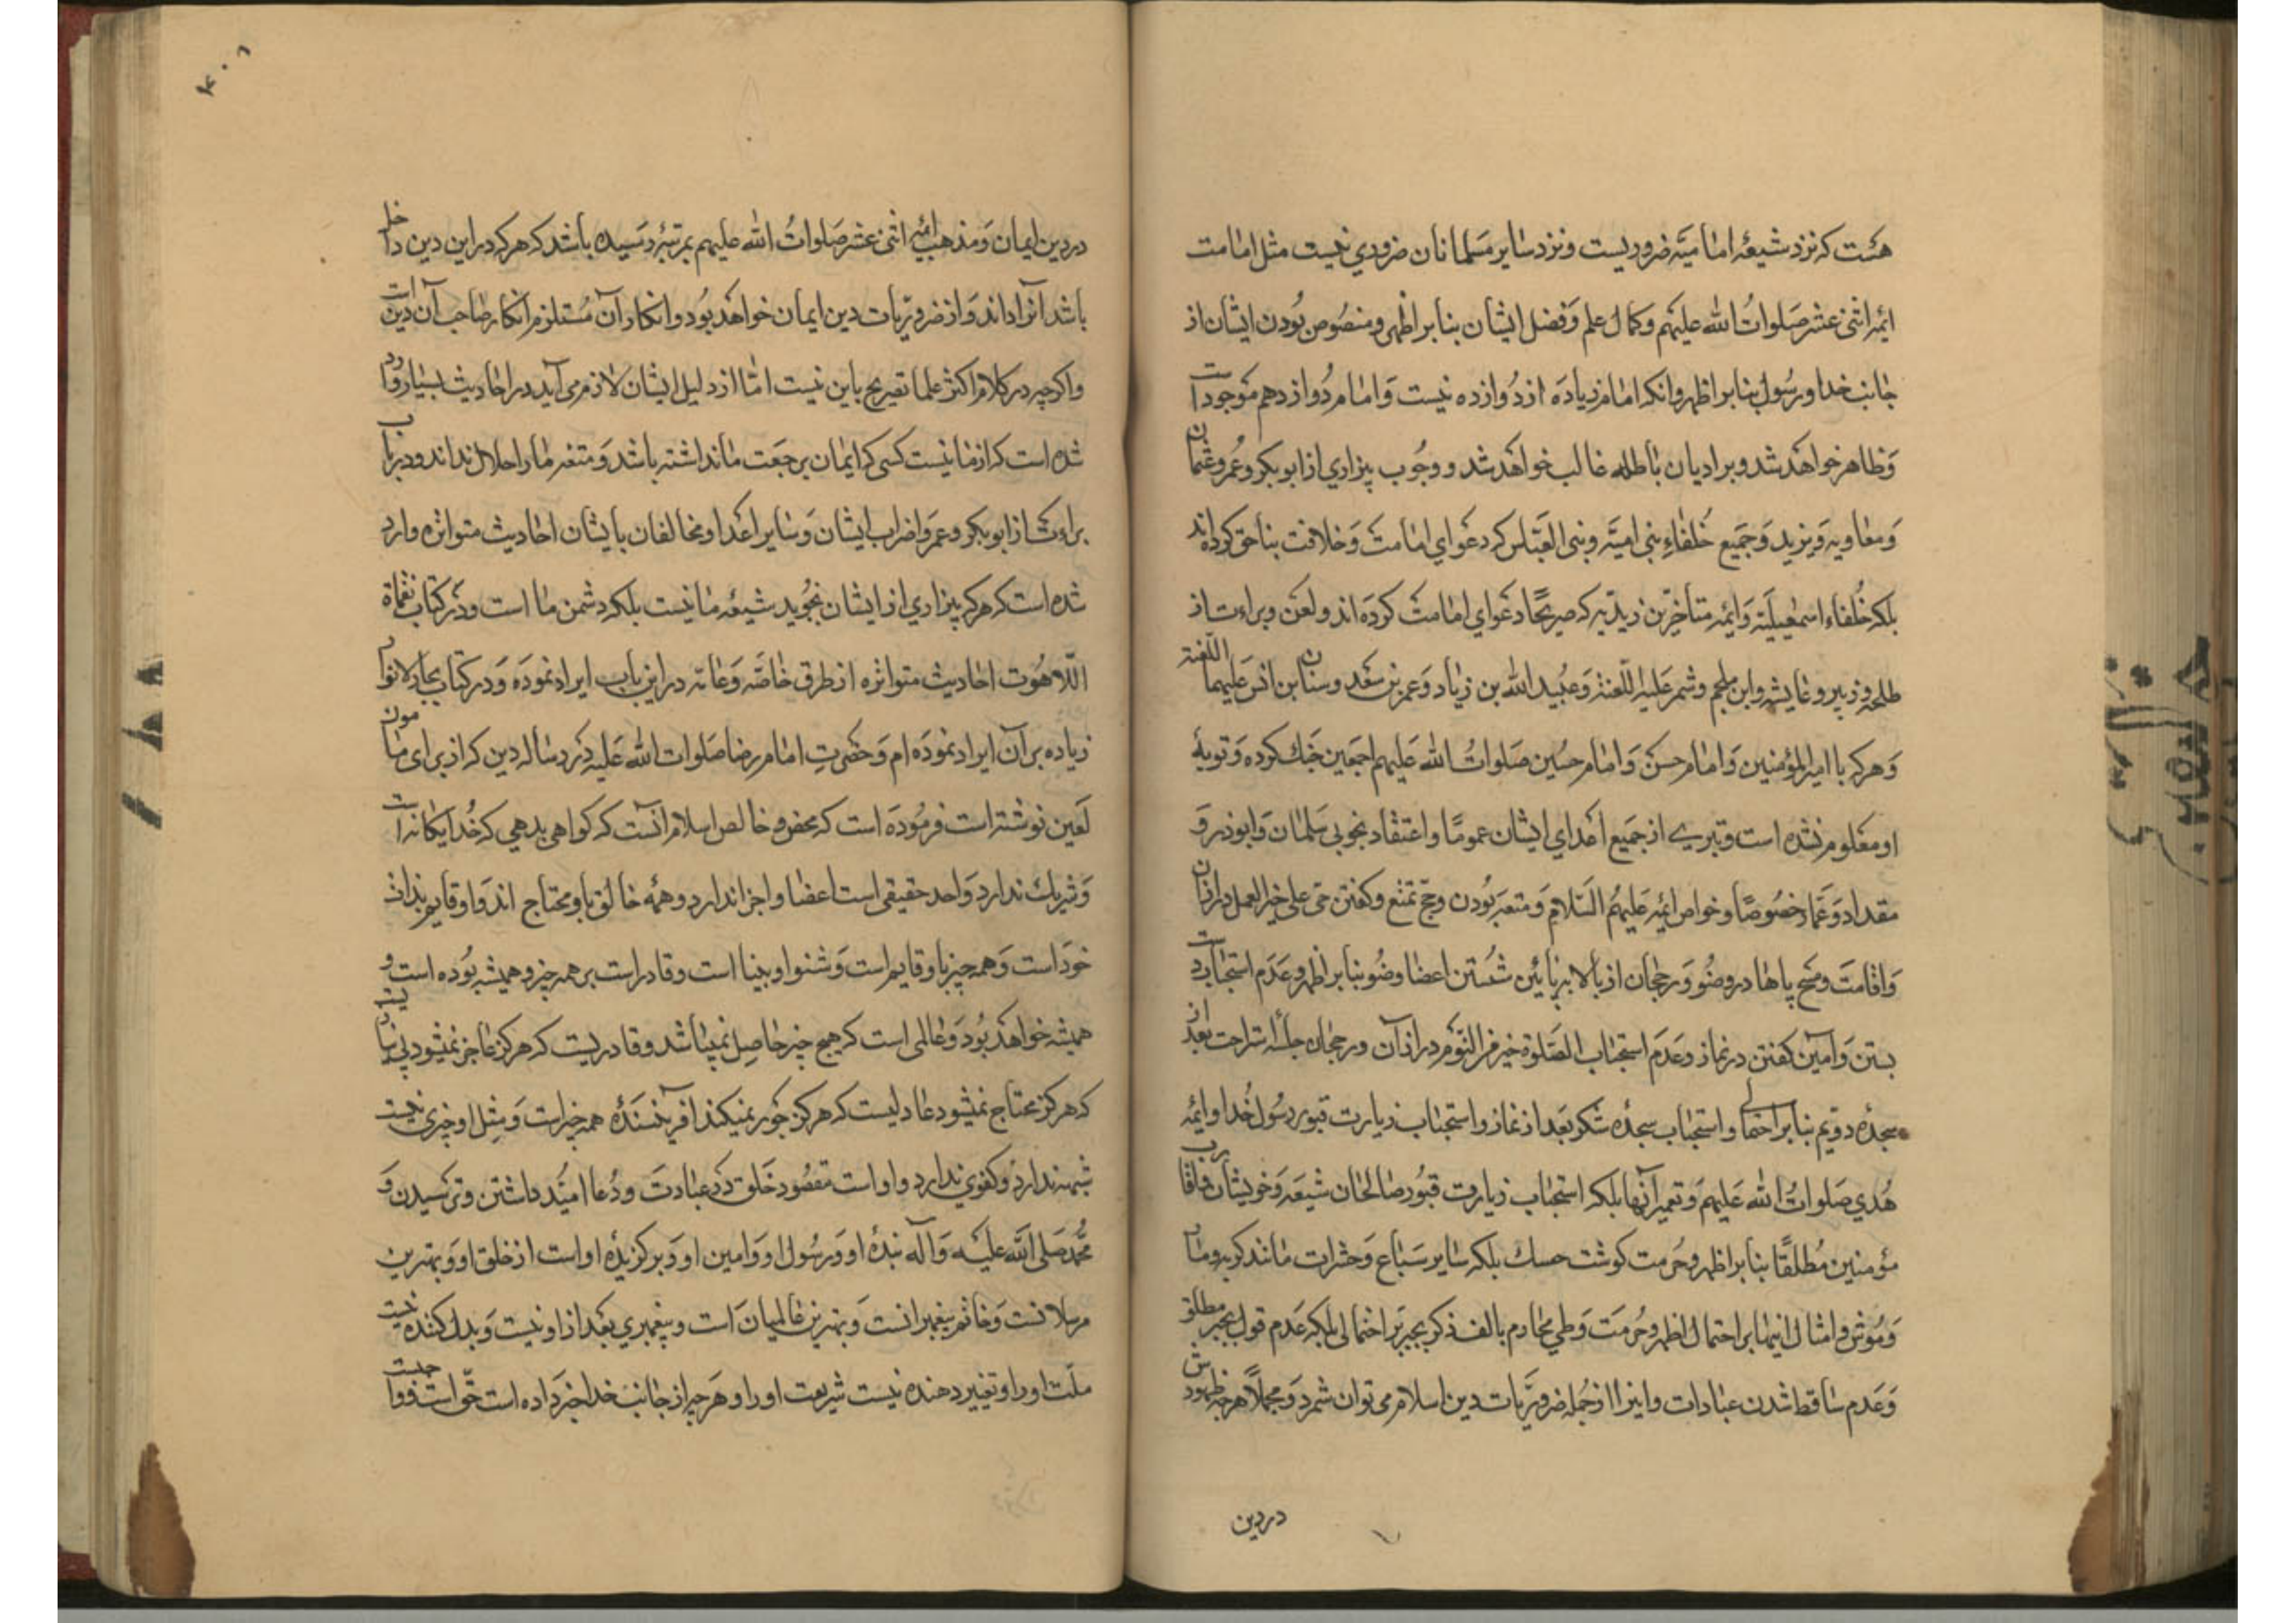 هست که نزد شیعهٔ امامیه ضروریست و نزد سایر مسلمانان ضروری نیست مثل امامت
ائمه اثنی عشر صلوات الله علیهم و کمال علم و فضل ایشان بنابر اظهر و منصوص بودن ایشان از
جانب خدا و رسول بنابر اظهر و انکه امام زیاده از دوازده نیست و امام دوازدهم موجود است
و ظاهر خواهد شد و بر ادیان باطله غالب خواهد شد و وجوب بیزاری از ابوبکر و عمر و عثمان
و معاویه و یزید و جمیع خلفاء بنی امیه و بنی العباس که دعوای امامت و خلافت بناحق کرده اند
بلکه خلفاء اسمعیلیه و ائمه متأخرین زیدیه که صریحاً دعوای امامت کرده اند و لعن و براءت از
طلحه و زبیر و عایشه و ابن ملجم و شمر علیه اللعنة و عبیدالله بن زیاد و عمر بن سعد و سنان بن انس علیهما اللعنة
و هرکه با امیرالمؤمنین و امام حسن و امام حسین صلوات الله علیهم اجمعین جنک کرده و توبهٔ
او معلوم نشده است و تبری از جمیع اعدای ایشان عموماً و اعتقاد بخوبی سلمان و ابوذر و
مقداد و عمار خصوصاً و خواص ائمه علیهم السلام و متعه بودن و حج تمتع و کفتن حی علی خیر العمل در اذان
و اقامت و مسح پاها در وضو و رجحان از بالا بپائین شستن اعضا وضو بنابر اظهر و عدم استحباب دست
بستن و آمین کفتن در نماز و عدم استحباب الصلوة خیر من النوم در اذان و رجحان جلسه استراحت بعد از
سجده دویم بنابر احتمالی و استحباب سجدهٔ شکر بعد از نماز و استحباب زیارت قبور رسول خدا و ائمه
هدی صلوات الله علیهم و تعمیر آنها بلکه استحباب زیارت قبور صالحان شیعه و خویشان و اقارب
مؤمنین مطلقاً بنابر اظهر و حرمت کوشت سک بلکه سایر سباع و حشرات مانند کربه و مار
و موش و امثال اینها بر احتمال اظهر و حرمت وطی محارم بالف ذکر بحریر بر احتمالی بلکه عدم قول بجبر مطلق
و عدم ساقط شدن عبادات و اینرا از جمله ضروریات دین اسلام می توان شمرد و مجملاً هرچه ظهورش
در دین
در دین ایمان و مذهب ائمه اثنی عشر صلوات الله علیهم بمرتبهٔ رسیده باشد که هرکه در این دین داخل
باشد آنرا داند و از ضروریات دین ایمان خواهد بود و انکار آن مستلزم انکار صاحب آن دین است
و اکرچه در کلام اکثر علما تصریح باین نیست امّا از دلیل ایشان لازم می آید در احادیث بسیار وارد
شده است که از ما نیست کسی که ایمان برجعت ما نداشته باشد و متعه ما را حلال نداند و در باب
براءت از ابوبکر و عمر و اضراب ایشان و سایر اعدا و مخالفان با ایشان احادیث متواتره وارد
شده است که هرکه بیزاری از ایشان نجوید شیعه ما نیست بلکه دشمن ما است و در کتاب نفحات
اللاهوت احادیث متواتره از طرق خاصّه و عامّه در این باب ایراد نموده و در کتاب بحار الانوار
زیاده بر آن ایراد نموده ام و حضرت امام رضا صلوات الله علیه در رساله دین که از برای مامون
لعین نوشته است فرموده است که محض و خالص اسلام آنست که کواهی بدهی که خدا یکانه است
و شریک ندارد و احد حقیقی است اعضا و اجزا ندارد و همه خالق باو محتاج اند و او قایم بذات
خود است و همه چیز باو قایم است و شنوا و بینا است و قادر است بر همه چیز و همیشه بوده است و
همیشه خواهد بود و عالمی است که هیچ چیز جاهل نمیباشد و قادریست که هرکز عاجز نمیشود بی نیازیست
که هرکز محتاج نمیشود عادلیست که هرکز جور نمیکند آفریننده همه چیز است و مثل او چیزی نیست
شبیه ندارد و کفوی ندارد و او است مقصود خلق در عبادت و دعا امید داشتن و ترسیدن و
محمّد صلی الله علیه و آله بنده او و رسول او و امین او و برکزیده او است از خلق او و بهترین
مرسلانست و خاتم پیغمبرانست و بهترین عالمیان است و پیغمبری بعد از او نیست و بدل کننده نیست
ملت او را و تغییر دهنده نیست شریعت او را و هرچه از جانب خدا خبر داده است حق است